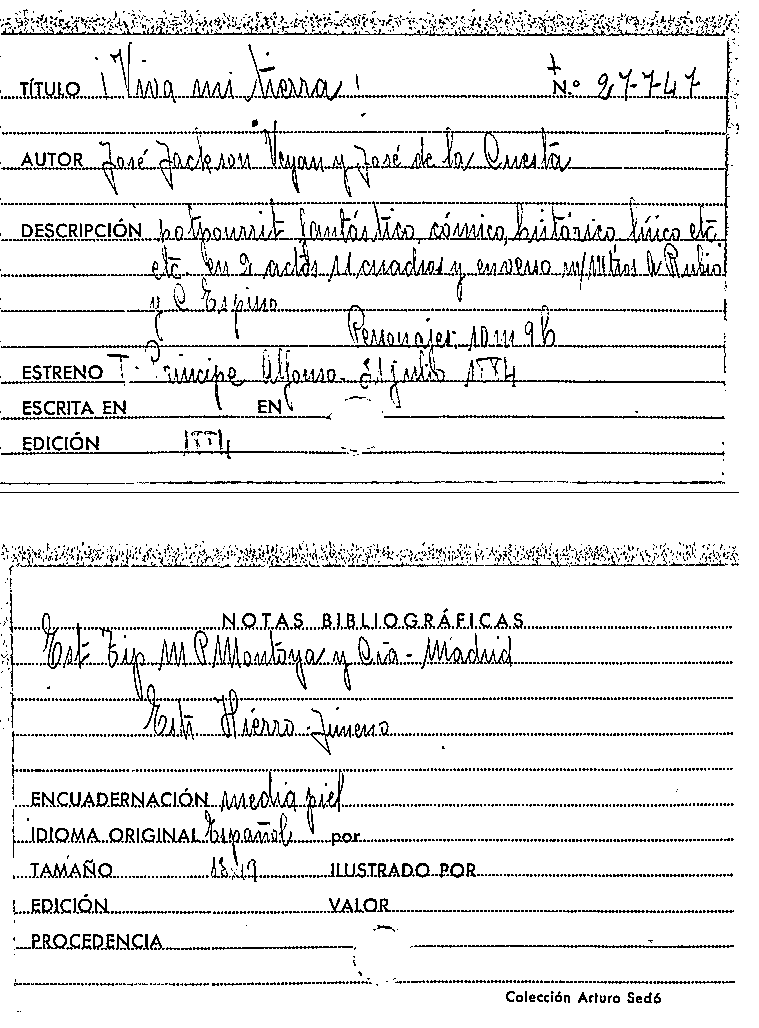 TÍTULO ¡Viva mi tierra! N.º 27-747
AUTOR José Jackson Veyan y José de la Cuesta
DESCRIPCIÓN potpourrit fantástico, cómico, histórico, lírico etc
etc. en 2 actos 11 cuadros y en verso m/Mtros A. Rubio
y C. Espino
Personajes: 10 m 9 h
ESTRENO T. Principe Alfonso. 31 julio 1884
ESCRITA EN EN
EDICIÓN 1884
NOTAS BIBLIOGRÁFICAS
Est Tip M P Montoya y Cía - Madrid
Estr Hierro-Jimeno
ENCUADERNACIÓN media piel
IDIOMA ORIGINAL Español por
TAMAÑO 13x19 ILUSTRADO POR
EDICIÓN VALOR
PROCEDENCIA
Colección Arturo Sedó